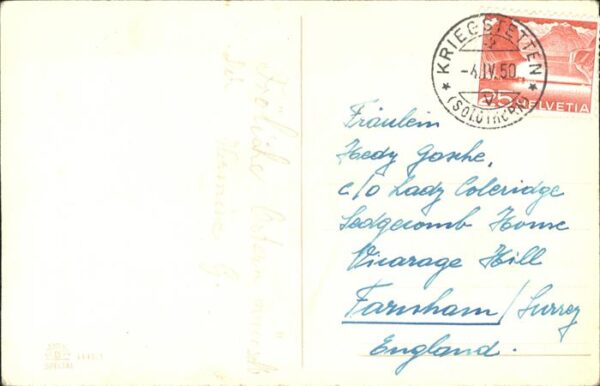 Fröhliche Ostern wünscht
Dir
KRIEGSTETTEN
-4.IV.50
(SOLOTHURN)
25 HELVETIA
Fräulein
Hedy Gashe,
c/o Lady Coleridge
Sedgecomb Home
Vicarage Hill
Farnham / Surrey
England.
SPECIAL